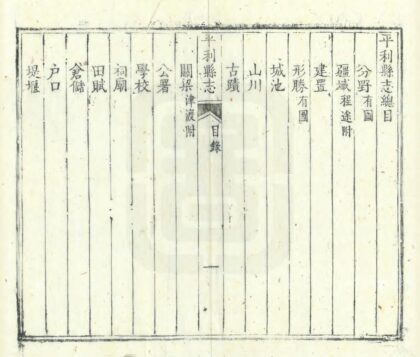 平利縣志總目
分野有圖
疆域程途附
建置
形勝有圖
城池
山川
古蹟
平利縣志 目錄 一
關梁津渡附
公署
學校
祠廟
田賦
倉儲
户口
堤堰